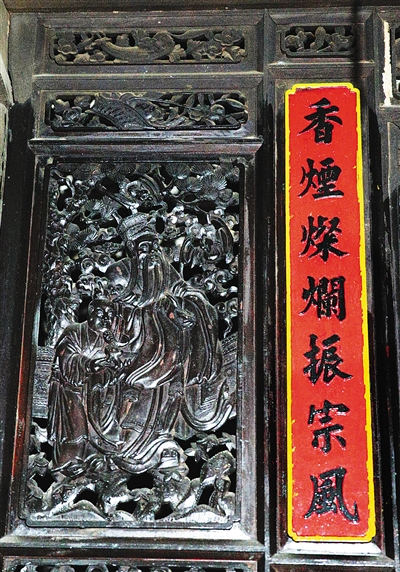 香煙燦爛振宗風